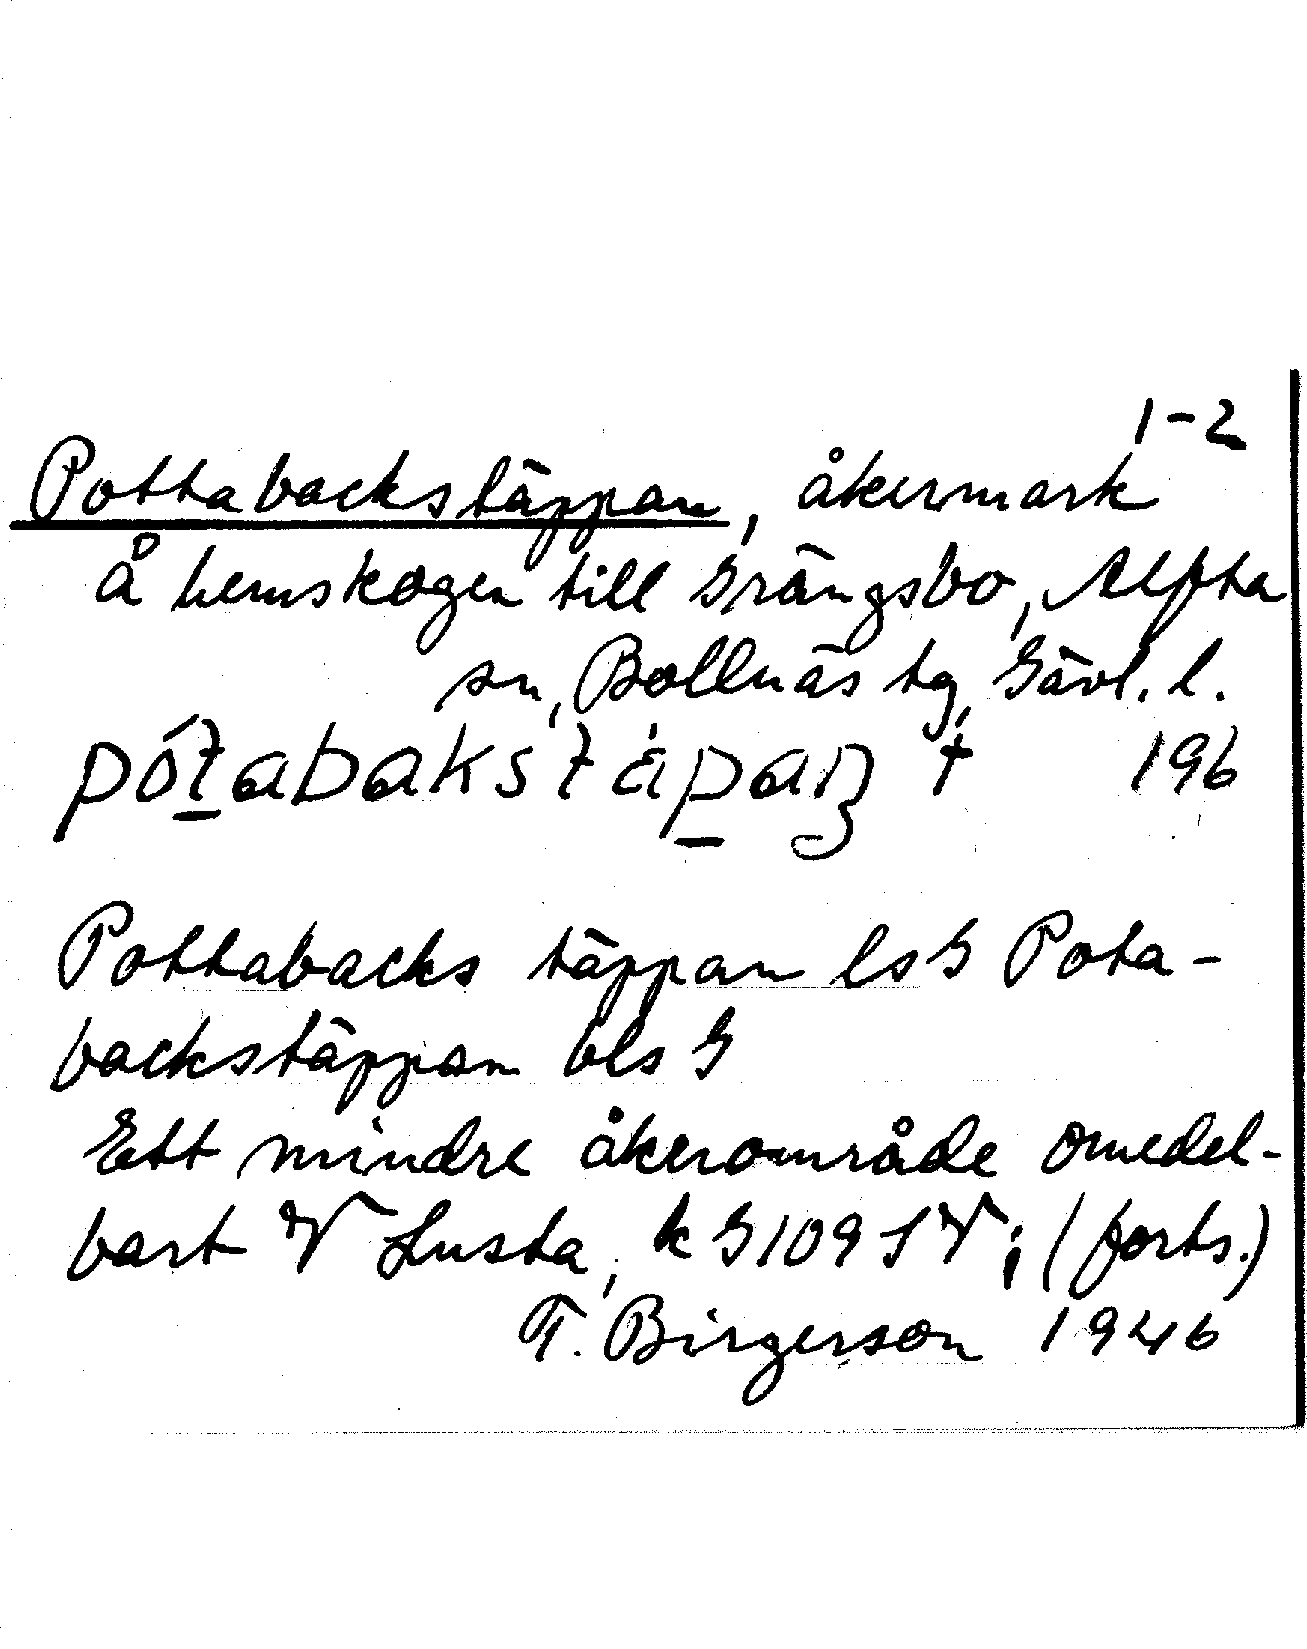 1-2
Pottabackstäppan, åkermark
å hemskogen till Grängsbo, Alfta
sn, Bollnäs tg, Gävl. l.
pótabakstä́paɳ † 196
Pottabacks täppan ls G Pota-
backstäppan bls G
Ett mindre åkerområde omedel-
bart V Lusta, k G 109 S V; (forts.)
T. Birgerson 1946